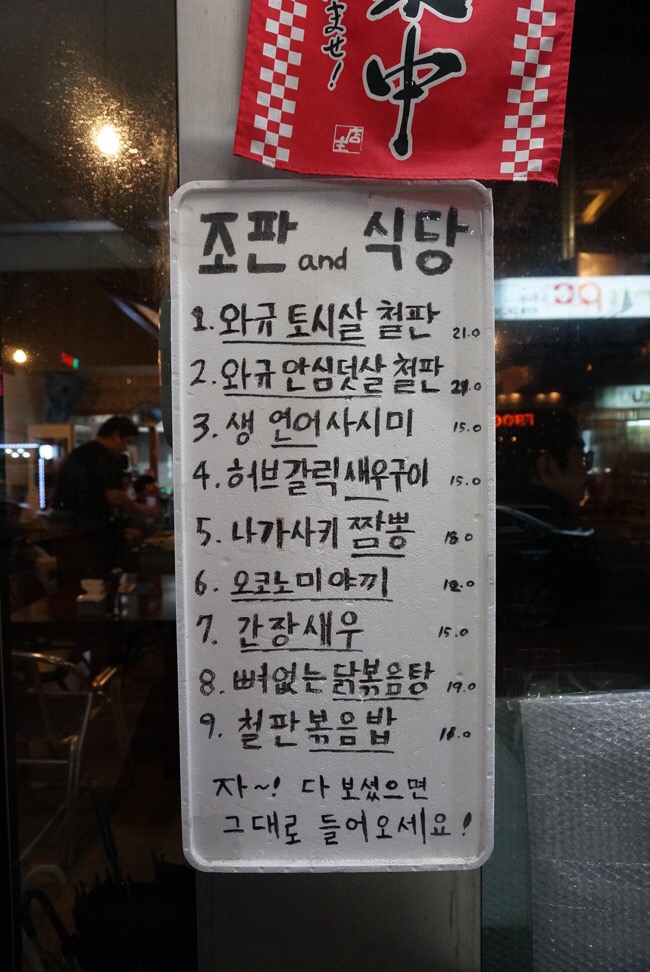 ませ!
中
店主
조판 and 식당
1. 와규 토시살 철판 21.0
2. 와규 안심덧살 철판 21.0
3. 생 연어사시미 15.0
4. 허브갈릭새우구이 15.0
5. 나가사키 짬뽕 18.0
6. 오코노미야끼
7. 간장새우 15.0
8. 뼈없는 닭볶음탕 19.0
9. 철판볶음밥
자~! 다 보셨으면
그대로 들어오세요!